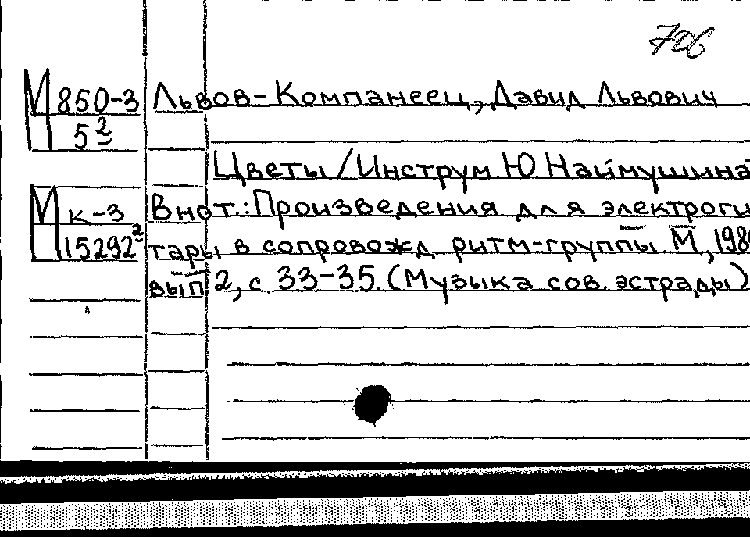 706
М 850-3 Львов-Компанеец, Давид Львович
5²
Цветы/Инструм Ю Наймушина
М к-3 В нот.: Произведения для электроги
15292² тары в сопровожд ритм-группы М, 198
вып 2, с. 33-35. (Музыка сов. эстрады)